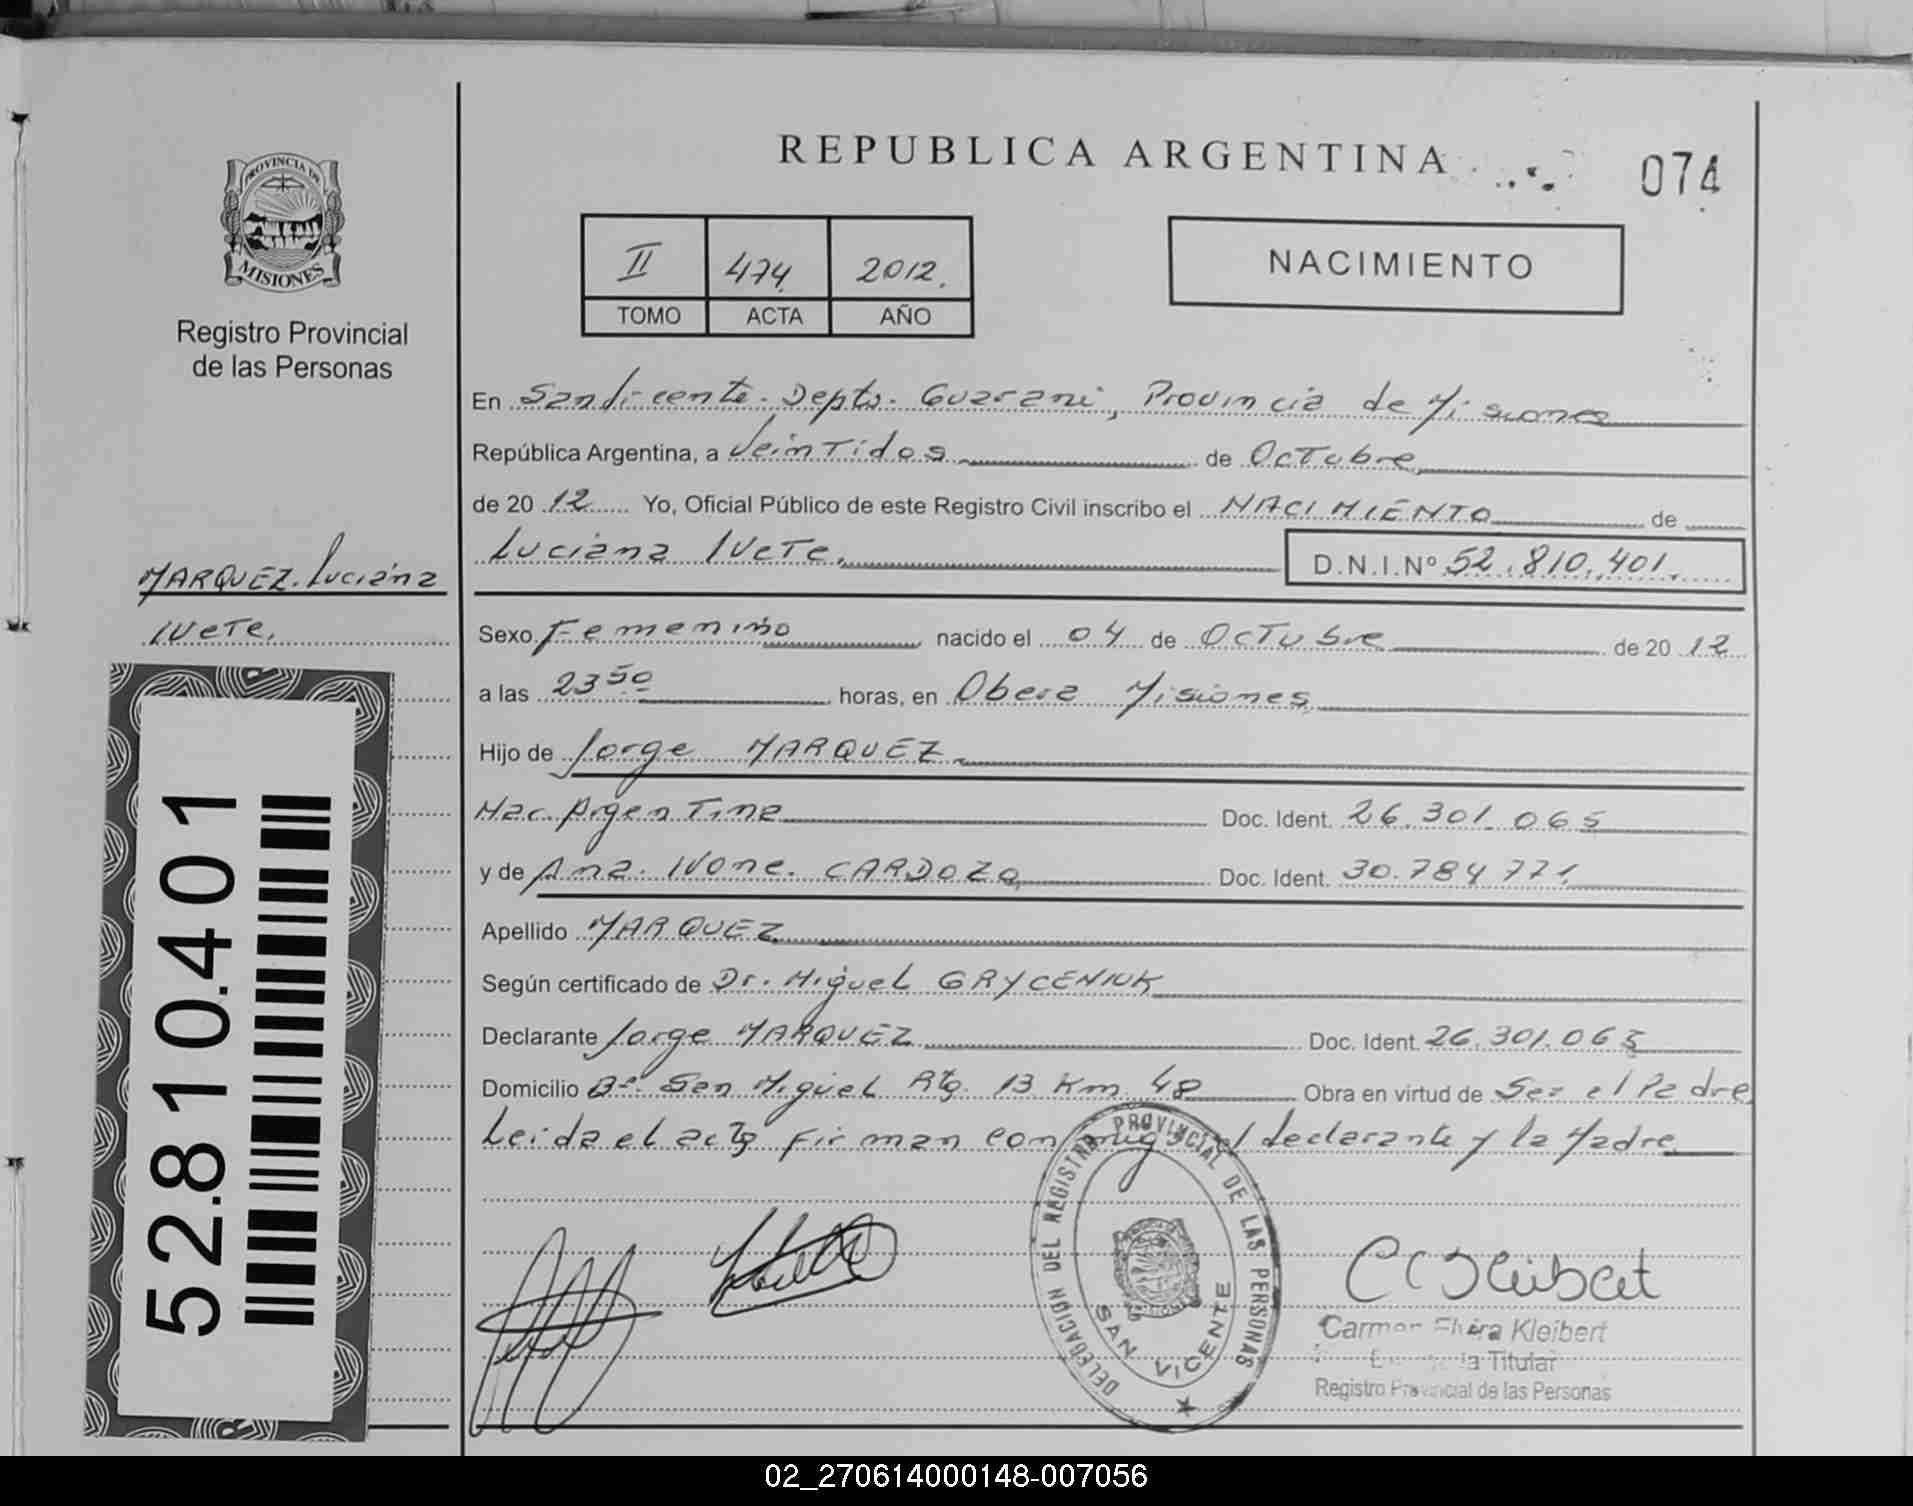 REPUBLICA ARGENTINA
074
PROVINCIA DE
MISIONES
Registro Provincial
de las Personas
II 474 2012.
TOMO ACTA AÑO
NACIMIENTO
En San Vicente. Depto. Guarani, Provincia de Misiones
República Argentina, a Veintidos de Octubre
de 20 12 Yo, Oficial Público de este Registro Civil inscribo el NACIMIENTO de
Luciana IveTe. D.N.I.Nº 52.810.401.
MARQUEZ. Luciana
IveTe.
Sexo Femenino nacido el 04 de Octubre de 20 12
a las 23 50 horas, en Obera Misiones
Hijo de Jorge MARQUEZ
Nac. Argentina Doc. Ident. 26.301.065
y de Ana. Ivone. CARDOZO Doc. Ident. 30.784.771
Apellido MARQUEZ
Según certificado de Dr. Miguel GRYCENIUK
Declarante Jorge MARQUEZ Doc. Ident. 26.301.065
Domicilio Bº. San Miguel Rta. 13 Km 48 Obra en virtud de Ser el Padre
Leida el acta firman conmigo el declarante y la Madre
52.810.401
DELEGACION DEL REGISTRO PROVINCIAL DE LAS PERSONAS
SAN VICENTE
Carmen Elvira Kleibert
Titular
Registro Provincial de las Personas
02_270614000148-007056